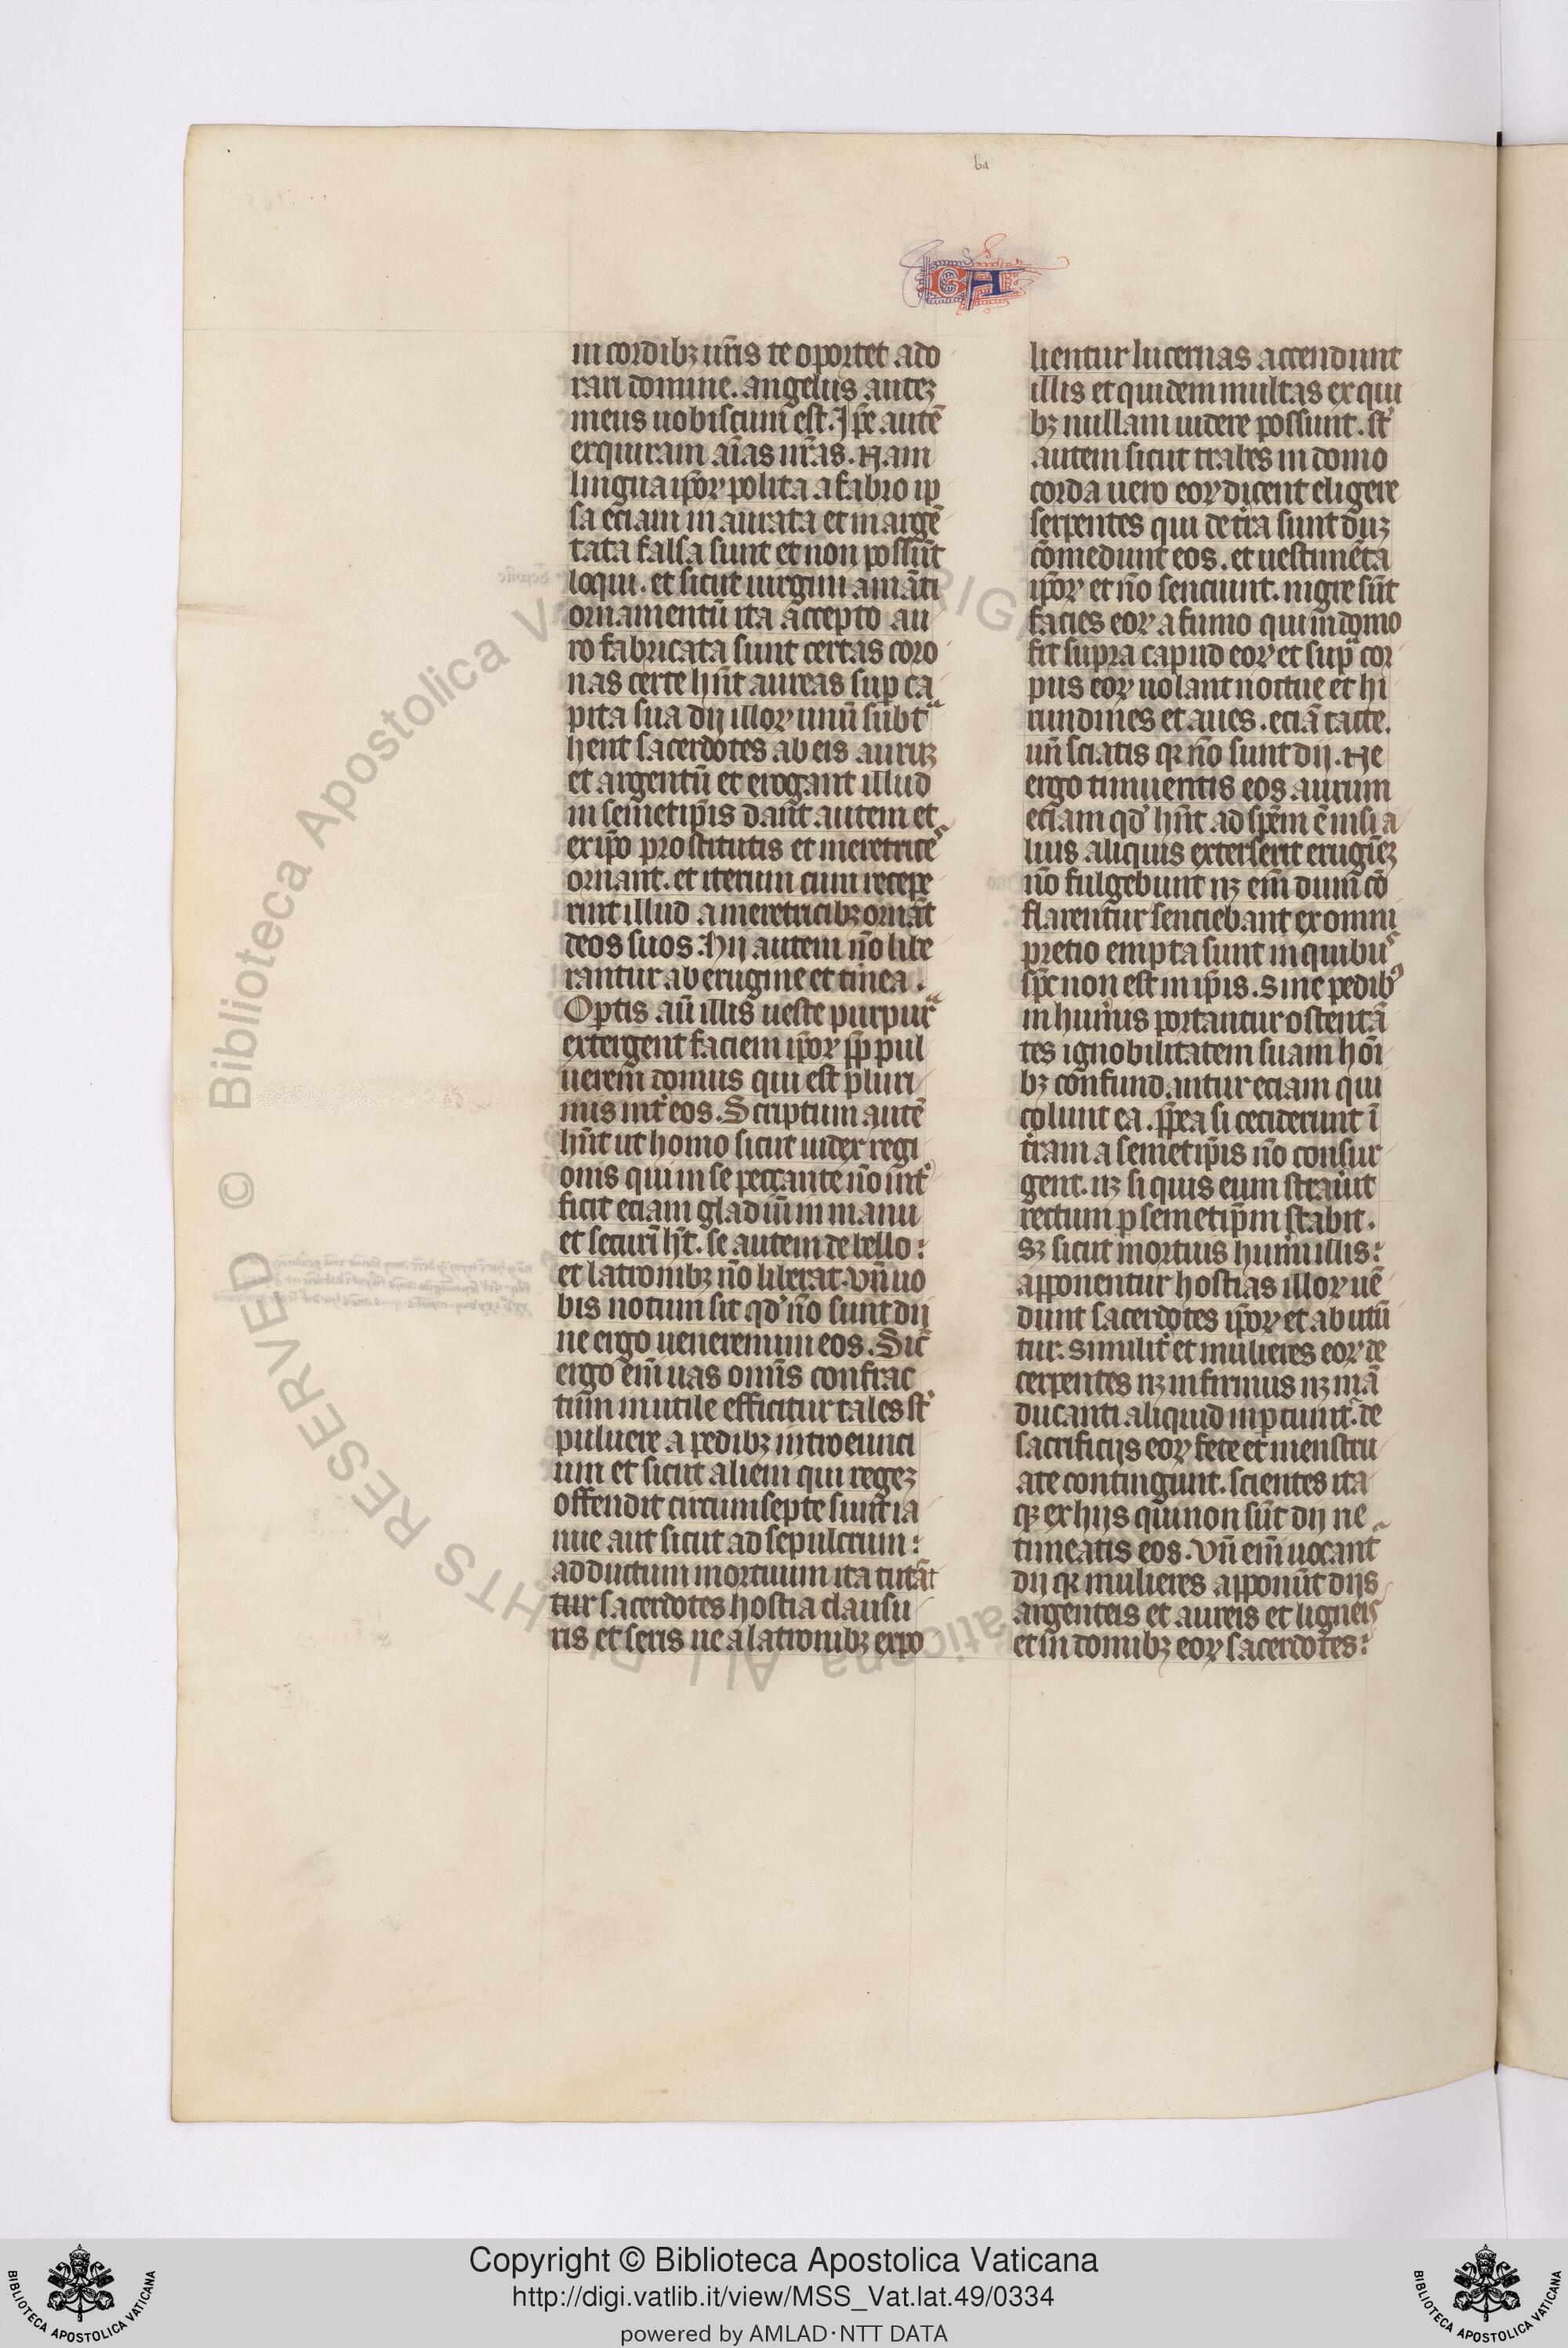 ba
CH
in cordibꝫ ur̄is te oportet ado
rari domine. angelus auteꝫ
meus uobiscum est. Ip̄e autē
exquiram aīas ur̄as. Nam
lingua ip̄oꝝ polita a fabro ip
sa eciam in aurata et in argē
tata falsa sunt et non possūt
loqui. et sicut uirgini amāti
ornamentū ita accepto au
ro fabricata sunt certas coro
nas certe hn̄t aureas suꝑ ca
pita sua dij illoꝝ unū sūbtᵃ
hent sacerdotes ab eis auruꝫ
et argentū et erogant illud
in semetip̄is dant autem et
ex ip̄o prostitutis et meretriceˢ
ornant. et iterum cum recepe
rint illud a meretricibꝫ ornāt
deos suos. Hij autem nō libe
rantur ab erugine et tinea.
Oꝑtis aū illis ueste purpurᵃ
extergent faciem ip̄oꝝ ꝓp̄ pul
uerem domus qui est pluri
mus int̓ eos. Scriptum autē
hn̄t ut homo sicut iudex regi
onis qui in se peccante nō int̓
ficit eciam gladiū in manu
et securī ht̄. se autem de bello:
et latronibꝫ nō liberat. vn̄ uo
bis notum sit qd̓ nō sunt dij
ne ergo ueneremini eos. Sic̄
ergo em̄ uas omīs confrac
tum inutile efficitur tales st̓
puluere a pedibꝫ introeunci
um et sicut aliem qui regeꝫ
offendit circumsepte sunt ia
nue aut sicut ad sepulcrum:
adductum mortuum ita tutāt
tur sacerdotes hostia clausu
ris et seris ne a latronibꝫ expo
lientur lucernas accendunt
illis et quidem multas ex qui
bꝫ nullam uidere possunt. st̓
autem sicut trabes in domo
corda uero eoꝝ dicent eligere
serpentes qui de tr̄a sunt duꝫ
cōmedunt eos. et uestimēta
ip̄oꝝ et nō senciunt. nigre sūt
facies eoꝝ a fumo qui in domo
fit supra capud eoꝝ et supᵃ cor
pus eoꝝ uolant noctue et hi
rundines et aues. eciā catte.
un̄ sciatis qꝛ nō sunt dij. Ne
ergo timueritis eos aurum
eciam qd̓ hn̄t ad spēm ē nisi a
lius aliquis exterserit erugīeꝫ
nō fulgebunt nꝫ em̄ dum cō
flarentur senciebant ex omni
pretio empta sunt in quibuˢ
sp̄c non est in ip̄is. Sine pedibꝰ
in humīs portantur ostentā
tes ignobilitatem suam hoī
bꝫ confundantur eciam qui
colunt ea. ꝓp̄ea si ceciderunt ī
tr̄am a semetip̄is nō consur
gent. nꝫ si quis eum strauit
rectum ꝑ semetip̄m stabit.
sꝫ sicut mortuis hum̄i illis:
apponentur hostias illoꝝ uē
dunt sacerdotes ip̄oꝝ et abutū
tur: similit̓ et mulieres eoꝝ de
cerpentes nꝫ infirmis nꝫ mā
ducanti aliquid inꝑciunt. de
sacrificijs eoꝝ fete et menstru
ate contingunt. scientes ita
qꝫ ex hijs quia non sūt dij ne
timeatis eos. Vn̄ em̄ uocant᷑
dij qꝛ mulieres apponūt dijs
argenteis et aureis et ligneis
et in domibꝫ eoꝝ sacerdotes:
© Biblioteca Apostolica Vaticana ALL RIGHTS RESERVED
Copyright © Biblioteca Apostolica Vaticana
http://digi.vatlib.it/view/MSS_Vat.lat.49/0334
powered by AMLAD·NTT DATA
BIBLIOTECA APOSTOLICA VATICANA
BIBLIOTECA APOSTOLICA VATICANA